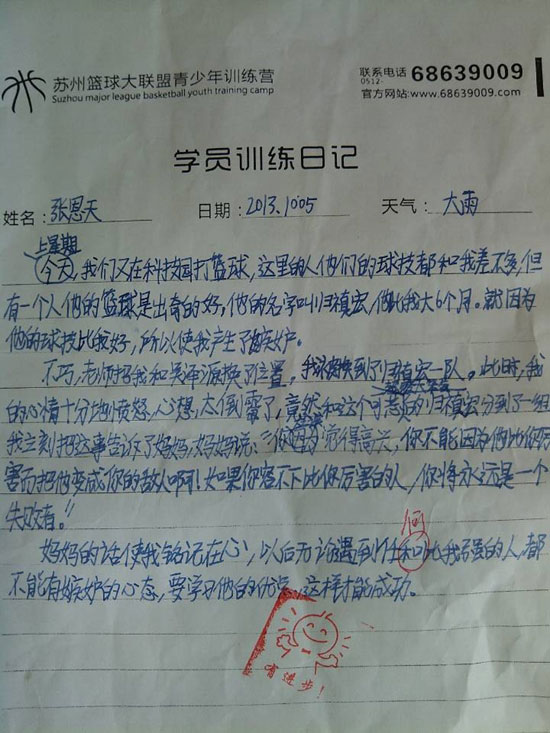 苏州篮球大联盟青少年训练营
Suzhou major league basketball youth training camp
联系电话 0512- 68639009
官方网站:www.68639009.com
学员训练日记
姓名:张恩天 日期:2013.10.05 天气:大雨
上星期
今天,我们又在科技园打篮球,这里的人他们的球技都和我差不多,但
有一个人他的篮球是出奇的好,他的名字叫归禛宏,他比我大6个月。就因为
他的球技比我好,所以使我产生了嫉妒。
不巧,老师把我和吴泽源换了位置,我被换到了归禛宏一队。此时,我
的心情十分地愤怒,心想,太倒霉了,竟然和这个可恶的归禛宏分到了一组
我立刻把这事告诉了妈妈,妈妈说:“你应该觉得高兴,你不能因为他比你厉
害而把他变成你的敌人啊!如果你容不下比你厉害的人,你将永远是一个
失败者。”
何
妈妈的话使我铭记在心,以后无论遇到任和比我强的人,都
不能有嫉妒的心态,要学习他的优点,这样才能成功。
有进步!